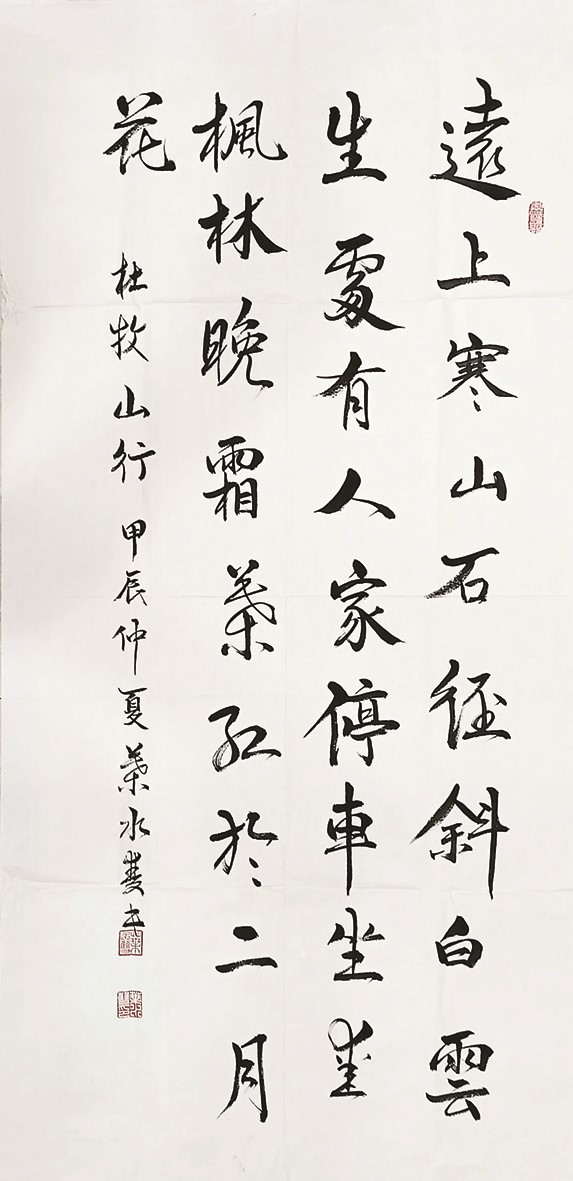 遠上寒山石徑斜白雲
生處有人家停車坐愛
楓林晚霜葉紅於二月
花
杜牧山行甲辰仲夏葉水書